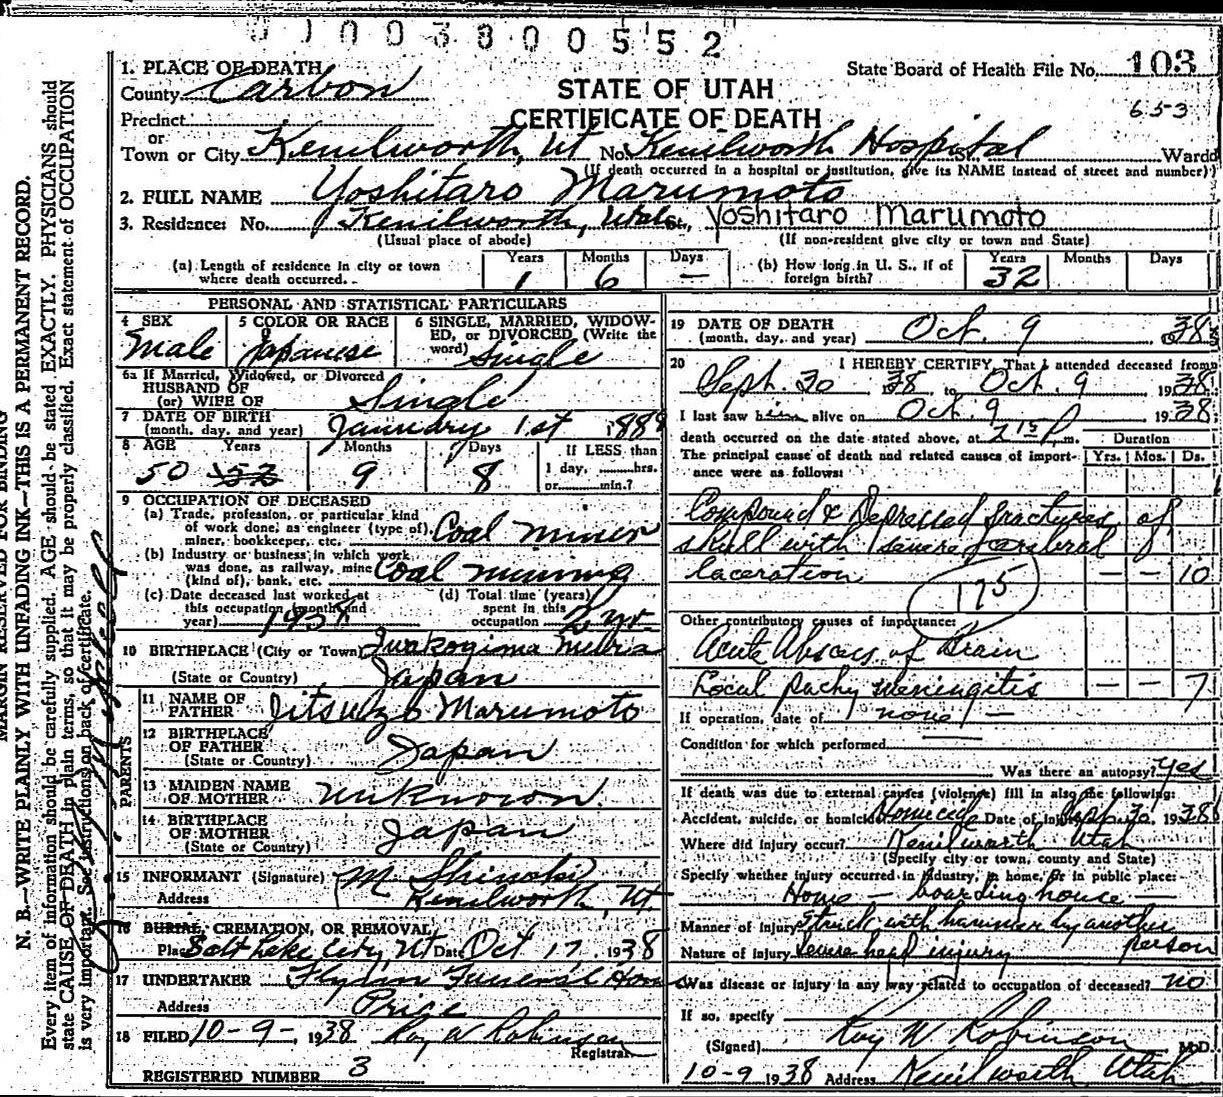 0 1 0 0 3 8 0 0 5 5 2
1. PLACE OF DEATH
County Carbon
STATE OF UTAH
CERTIFICATE OF DEATH
State Board of Health File No. 103
653
Precinct
or
Town or City Kenilworth, Ut No. Kenilworth Hospital St. Ward
(If death occurred in a hospital or institution, give its NAME instead of street and number)
2. FULL NAME Yoshitaro Marumoto
3. Residence: No. Kenilworth, Utah St., Yoshitaro Marumoto
(Usual place of abode) (If non-resident give city or town and State)
(a) Length of residence in city or town where death occurred. Years 1 Months 6 Days —
(b) How long in U. S., if of foreign birth? Years 32 Months Days
PERSONAL AND STATISTICAL PARTICULARS
4 SEX Male
5 COLOR OR RACE Japanese
6 SINGLE, MARRIED, WIDOWED, or DIVORCED (Write the word) Single
6a If Married, Widowed, or Divorced
HUSBAND OF
(or) WIFE OF Single
7 DATE OF BIRTH
(month, day, and year) January 1st 1888
8 AGE Years 50 52 Months 9 Days 8 If LESS than
1 day, hrs.
or min.?
9 OCCUPATION OF DECEASED
(a) Trade, profession, or particular kind
of work done, as engineer (type of),
miner, bookkeeper, etc. Coal miner
(b) Industry or business in which work
was done, as railway, mine
(kind of), bank, etc. Coal mining
(c) Date deceased last worked at
this occupation (month and
year) 1938
(d) Total time (years)
spent in this
occupation 2 yr.
10 BIRTHPLACE (City or Town)
(State or Country) Japan
PARENTS
11 NAME OF
FATHER Marumoto
12 BIRTHPLACE
OF FATHER
(State or Country) Japan
13 MAIDEN NAME
OF MOTHER unknown.
14 BIRTHPLACE
OF MOTHER
(State or Country) Japan
15 INFORMANT (Signature) M.
Address Kenilworth, Ut
16 BURIAL, CREMATION, OR REMOVAL
Place Salt Lake City, Ut Date Oct 17, 1938
17 UNDERTAKER Flynn Funeral Home
Address Price
18 FILED 10-9-, 1938 Roy W Robinson
Registrar
REGISTERED NUMBER 3
19 DATE OF DEATH
(month, day, and year) Oct. 9, 1938
20 I HEREBY CERTIFY, That I attended deceased from
Sept. 30 38 to Oct. 9 1938
I last saw him alive on Oct. 9 1938
death occurred on the date stated above, at 2 15 P. m. Duration
The principal cause of death and related causes of importance were as follows: Yrs. Mos. Ds.
Compound & Depressed fractures of
skull with severe cerebral
laceration — — 10
175
Other contributory causes of importance:
Acute Abscess of Brain
Local pachymeningitis — — 7
If operation, date of none —
Condition for which performed
Was there an autopsy? yes
If death was due to external causes (violence) fill in also the following:
Accident, suicide, or homicide Homicide Date of injury Sept. 30, 1938
Where did injury occur? Kenilworth Utah
(Specify city or town, county and State)
Specify whether injury occurred in industry, in home, or in public place:
Home — boarding house —
Manner of injury Struck with hammer by another person
Nature of injury Severe head injury
Was disease or injury in any way related to occupation of deceased? no
If so, specify
(Signed) Roy W Robinson M.D.
10-9 1938 Address Kenilworth, Utah
MARGIN RESERVED FOR BINDING
N. B.—WRITE PLAINLY WITH UNFADING INK—THIS IS A PERMANENT RECORD.
Every item of information should be carefully supplied. AGE should be stated EXACTLY. PHYSICIANS should
state CAUSE OF DEATH in plain terms, so that it may be properly classified. Exact statement of OCCUPATION
is very important. See instructions on back of certificate.